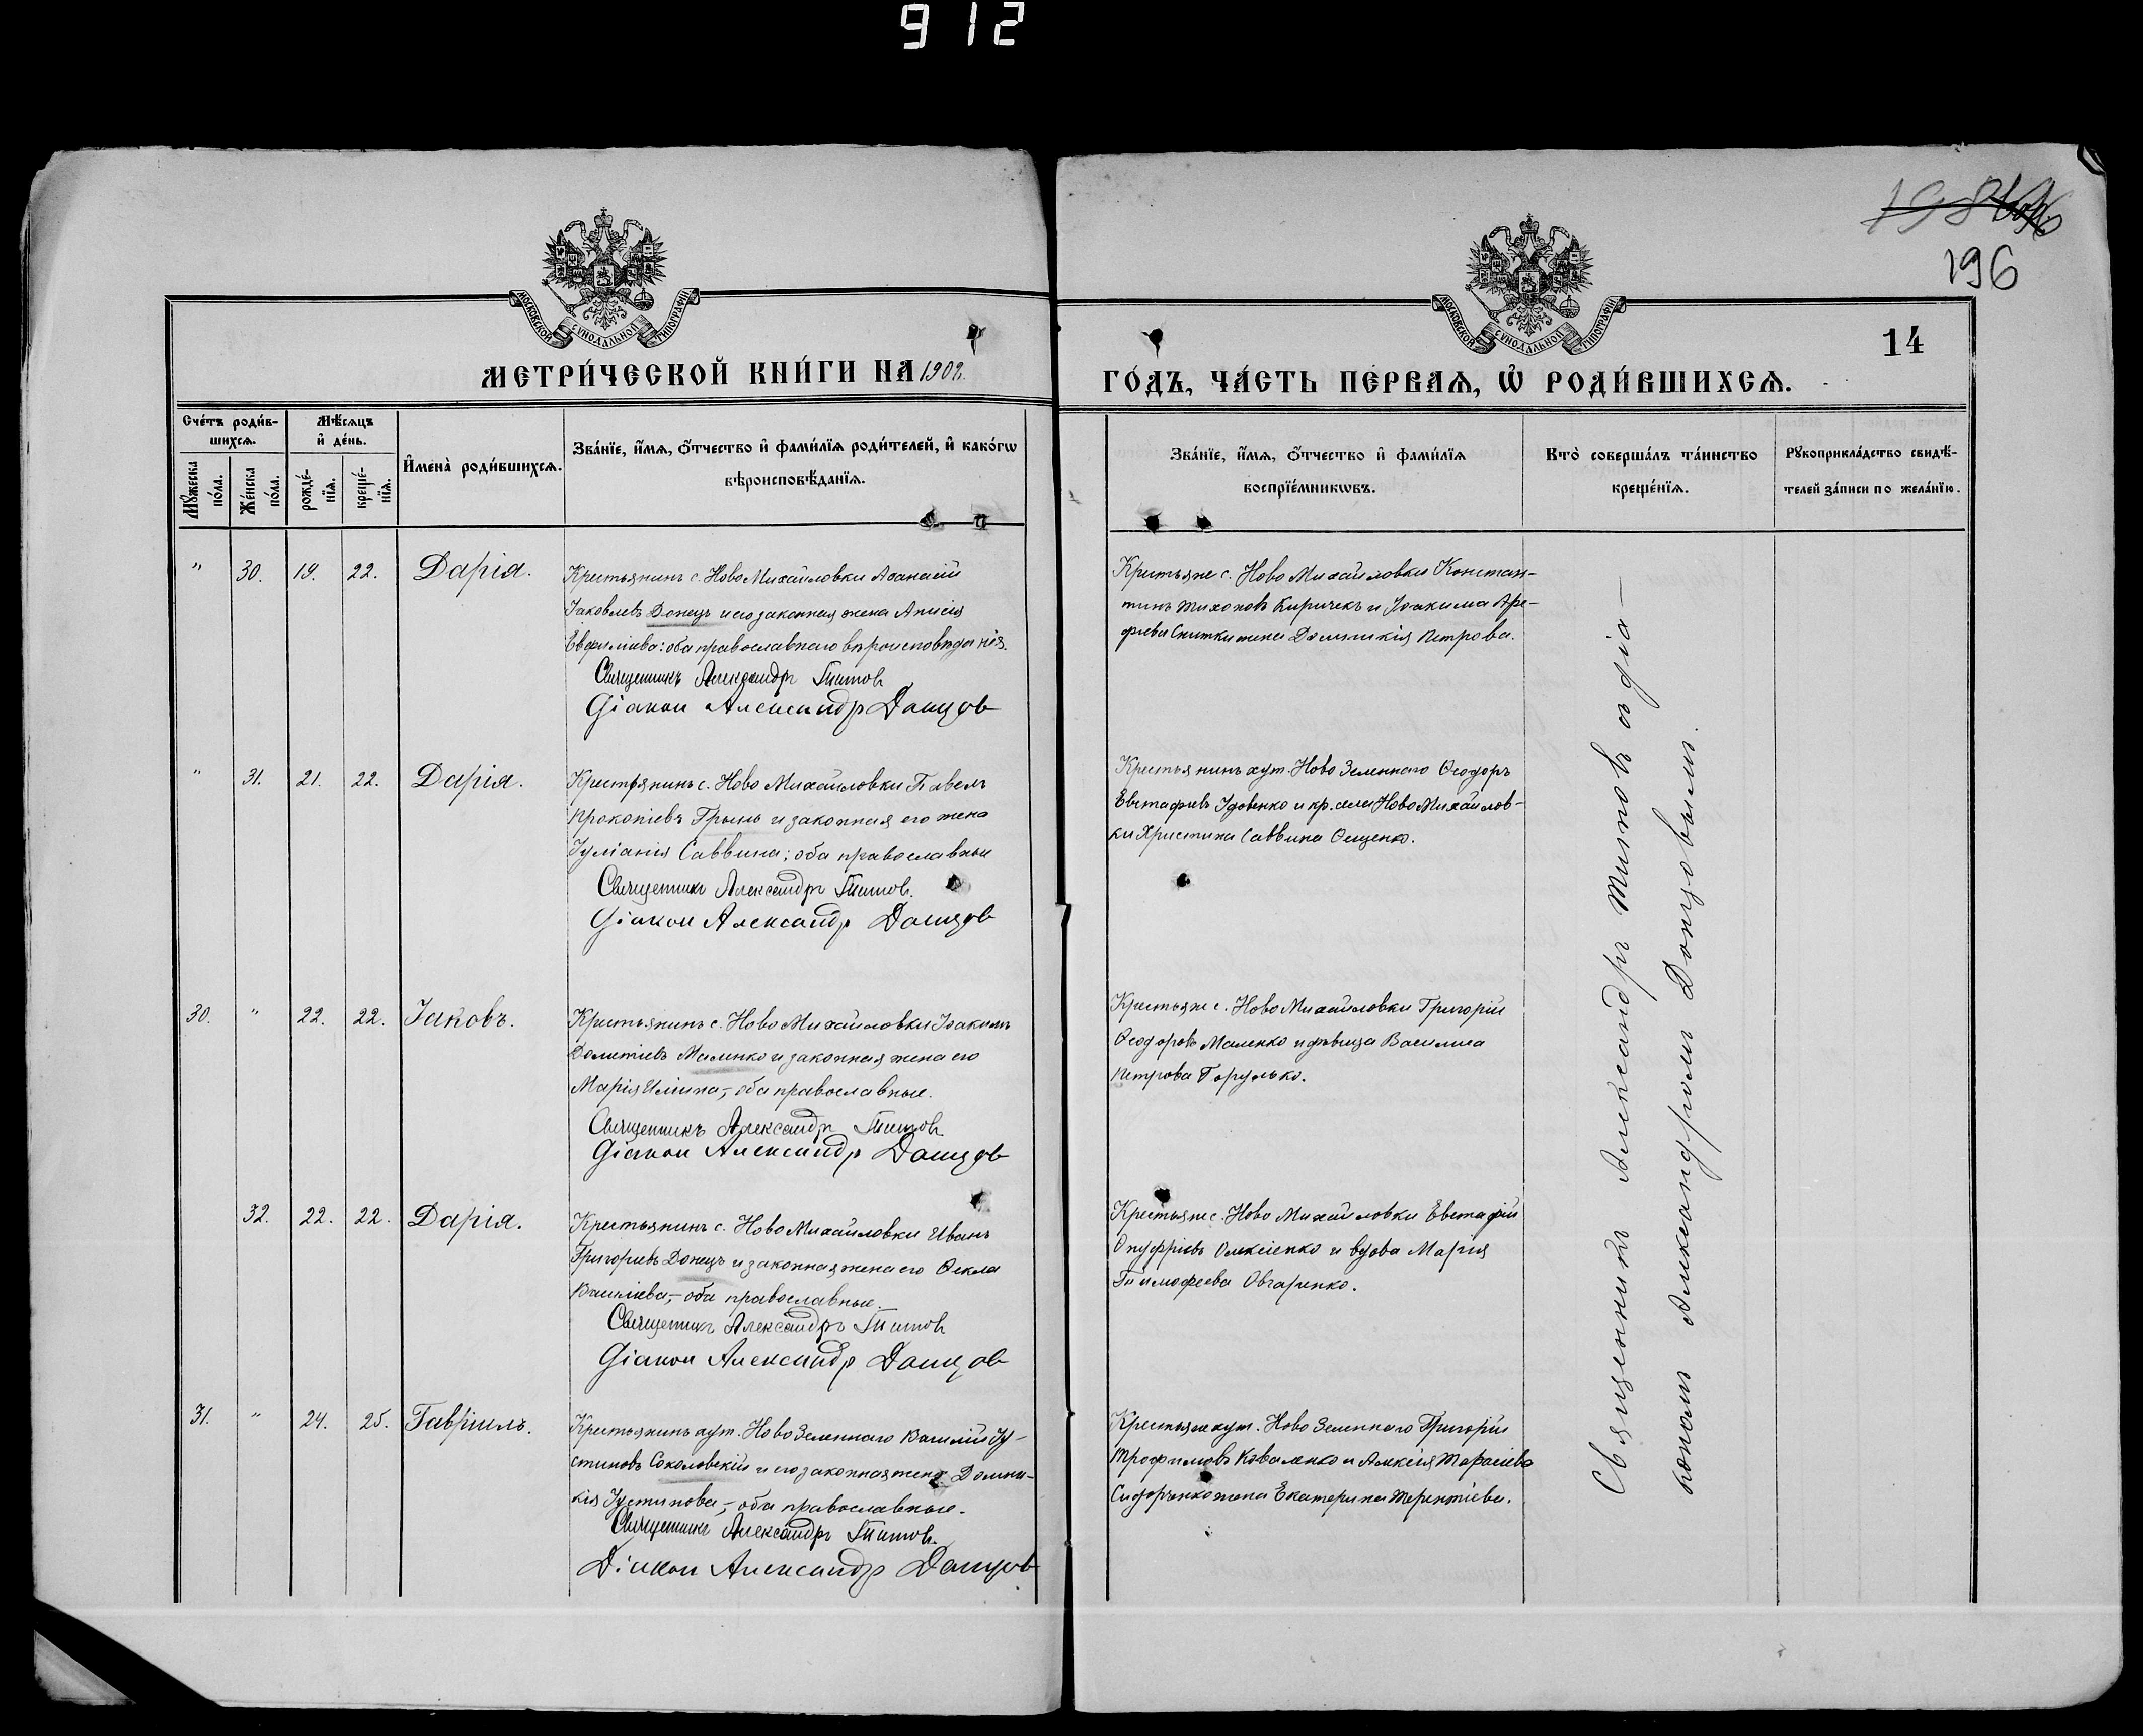 912
198
196
МОСКОВСКОЙ СѴНОДАЛЬНОЙ ТИПОГРАФІИ
МОСКОВСКОЙ СѴНОДАЛЬНОЙ ТИПОГРАФІИ
14
МЕТРИ́ЧЕСКОЙ КНИ́ГИ НА 1902.
ГО́ДЪ, ЧА́СТЬ ПЕ́РВАѦ, Ѡ҆ РОДИ́ВШИХСѦ.
Сче́тъ роди́в-
шихсѧ.
Мꙋ́жеска по́ла.
Же́нска по́ла.
Мѣ́сѧцъ
и҆ де́нь.
рожде́-
нїѧ.
креще́-
нїѧ.
И҆мена̀ роди́вшихсѧ.
Зва́нїе, и҆́мѧ, ѻ҆́тчество и҆ фами́лїѧ роди́телей, и҆ како́гѡ
вѣроисповѣ́данїѧ.
Зва́нїе, и҆́мѧ, ѻ҆́тчество и҆ фами́лїѧ
воспрїе́мникѡвъ.
Кто̀ соверша́лъ та́инство
креще́нїѧ.
Рꙋкоприкла́дство свидѣ́-
телей за́писи по жела́нїю.
" 30. 19. 22. Дарія.
Крестьянинъ с. Ново Михайловки Аѳанасій
Іаковлевъ Донецъ и его законная жена Анисія
Евфиміева: оба православнаго вѣроисповѣданія.
Священникъ Александръ Титовъ
Діакон Александр Донцов
Крестьяне с. Ново Михайловки Констан-
тинъ Тихоновъ Киричекъ и Іоакима Аре-
фіева Снитки жена Домникія Петрова.
" 31. 21. 22. Дарія.
Крестьянинъ с. Ново Михайловки Павелъ
Прокопіевъ Гринь и законная его жена
Іуліанія Саввина; оба православные
Священникъ Александръ Титов.
Діакон Александр Донцов
Крестьянинъ хут. Ново Зеленнаго Ѳеодоръ
Евстафіевъ Удовенко и кр. села Ново Михайлов-
ки Христина Саввина Ѳещенко.
30. " 22. 22. Іаковъ.
Крестьянинъ с. Ново Михайловки Іоакимъ
Дометіевъ Маленко и законная жена его
Марія Иліина, - оба православные.
Священникъ Александръ Титов
Діакон Александр Донцов
Крестьяне с. Ново Михайловки Григорій
Ѳеодоровъ Маленко и дѣвица Василиса
Петрова Горулько.
32. 22. 22. Дарія.
Крестьянинъ с. Ново Михайловки Иванъ
Григорьевъ Донецъ и законная жена его Ѳекла
Василіева, - оба православные.
Священникъ Александръ Титовъ
Діакон Александр Донцов
Крестьяне с. Ново Михайловки Евстафій
Онуфріевъ Олексіенко и вдова Марія
Тимофеева Овчаренко.
31. " 24. 25. Гавріилъ.
Крестьянинъ хут. Ново Зеленнаго Василій Іу-
стиновъ Соколовскій и его законная жена Домни-
кія Іустинова, - оба православные.
Священникъ Александръ Титовъ.
Діакон Александр Донцов
Крестьяне хут. Ново Зеленнаго Григорій
Трофимовъ Коваленко и Алексія Тарасіева
Сидорченко жена Екатерина Терентіева.
Священникъ Александръ Титовъ съ діа-
кономъ Александромъ Донцовымъ.